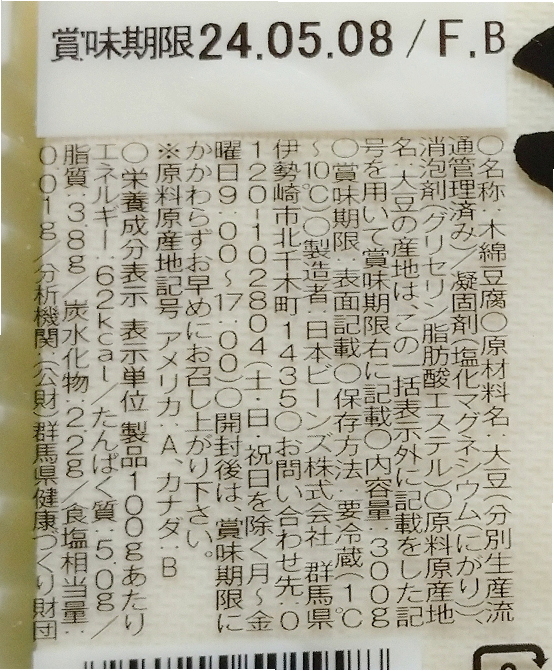 賞味期限24.05.08/F.B
○名称:木綿豆腐○原材料名:大豆(分別生産流
通管理済み)/凝固剤(塩化マグネシウム(にがり)、
消泡剤(グリセリン脂肪酸エステル)○原料原産地
名:大豆の産地は、この一括表示外に記載をした記
号を用いて賞味期限右に記載○内容量:300g
○賞味期限:表面記載○保存方法:要冷蔵(1℃
~10℃)○製造者:日本ビーンズ株式会社 群馬県
伊勢崎市北千木町1435○お問い合わせ先:0
120-102804(土・日・祝日を除く月~金
曜日9:00~17:00)○開封後は、賞味期限に
かかわらずお早めにお召し上がり下さい。
※原料原産地記号 アメリカ:A、カナダ:B
○栄養成分表示 表示単位 製品100gあたり
エネルギー:62kcal/たんぱく質:5.0g/
脂質:3.8g/炭水化物:2.2g/食塩相当量:
0.01g/分析機関:(公財)群馬県健康づくり財団